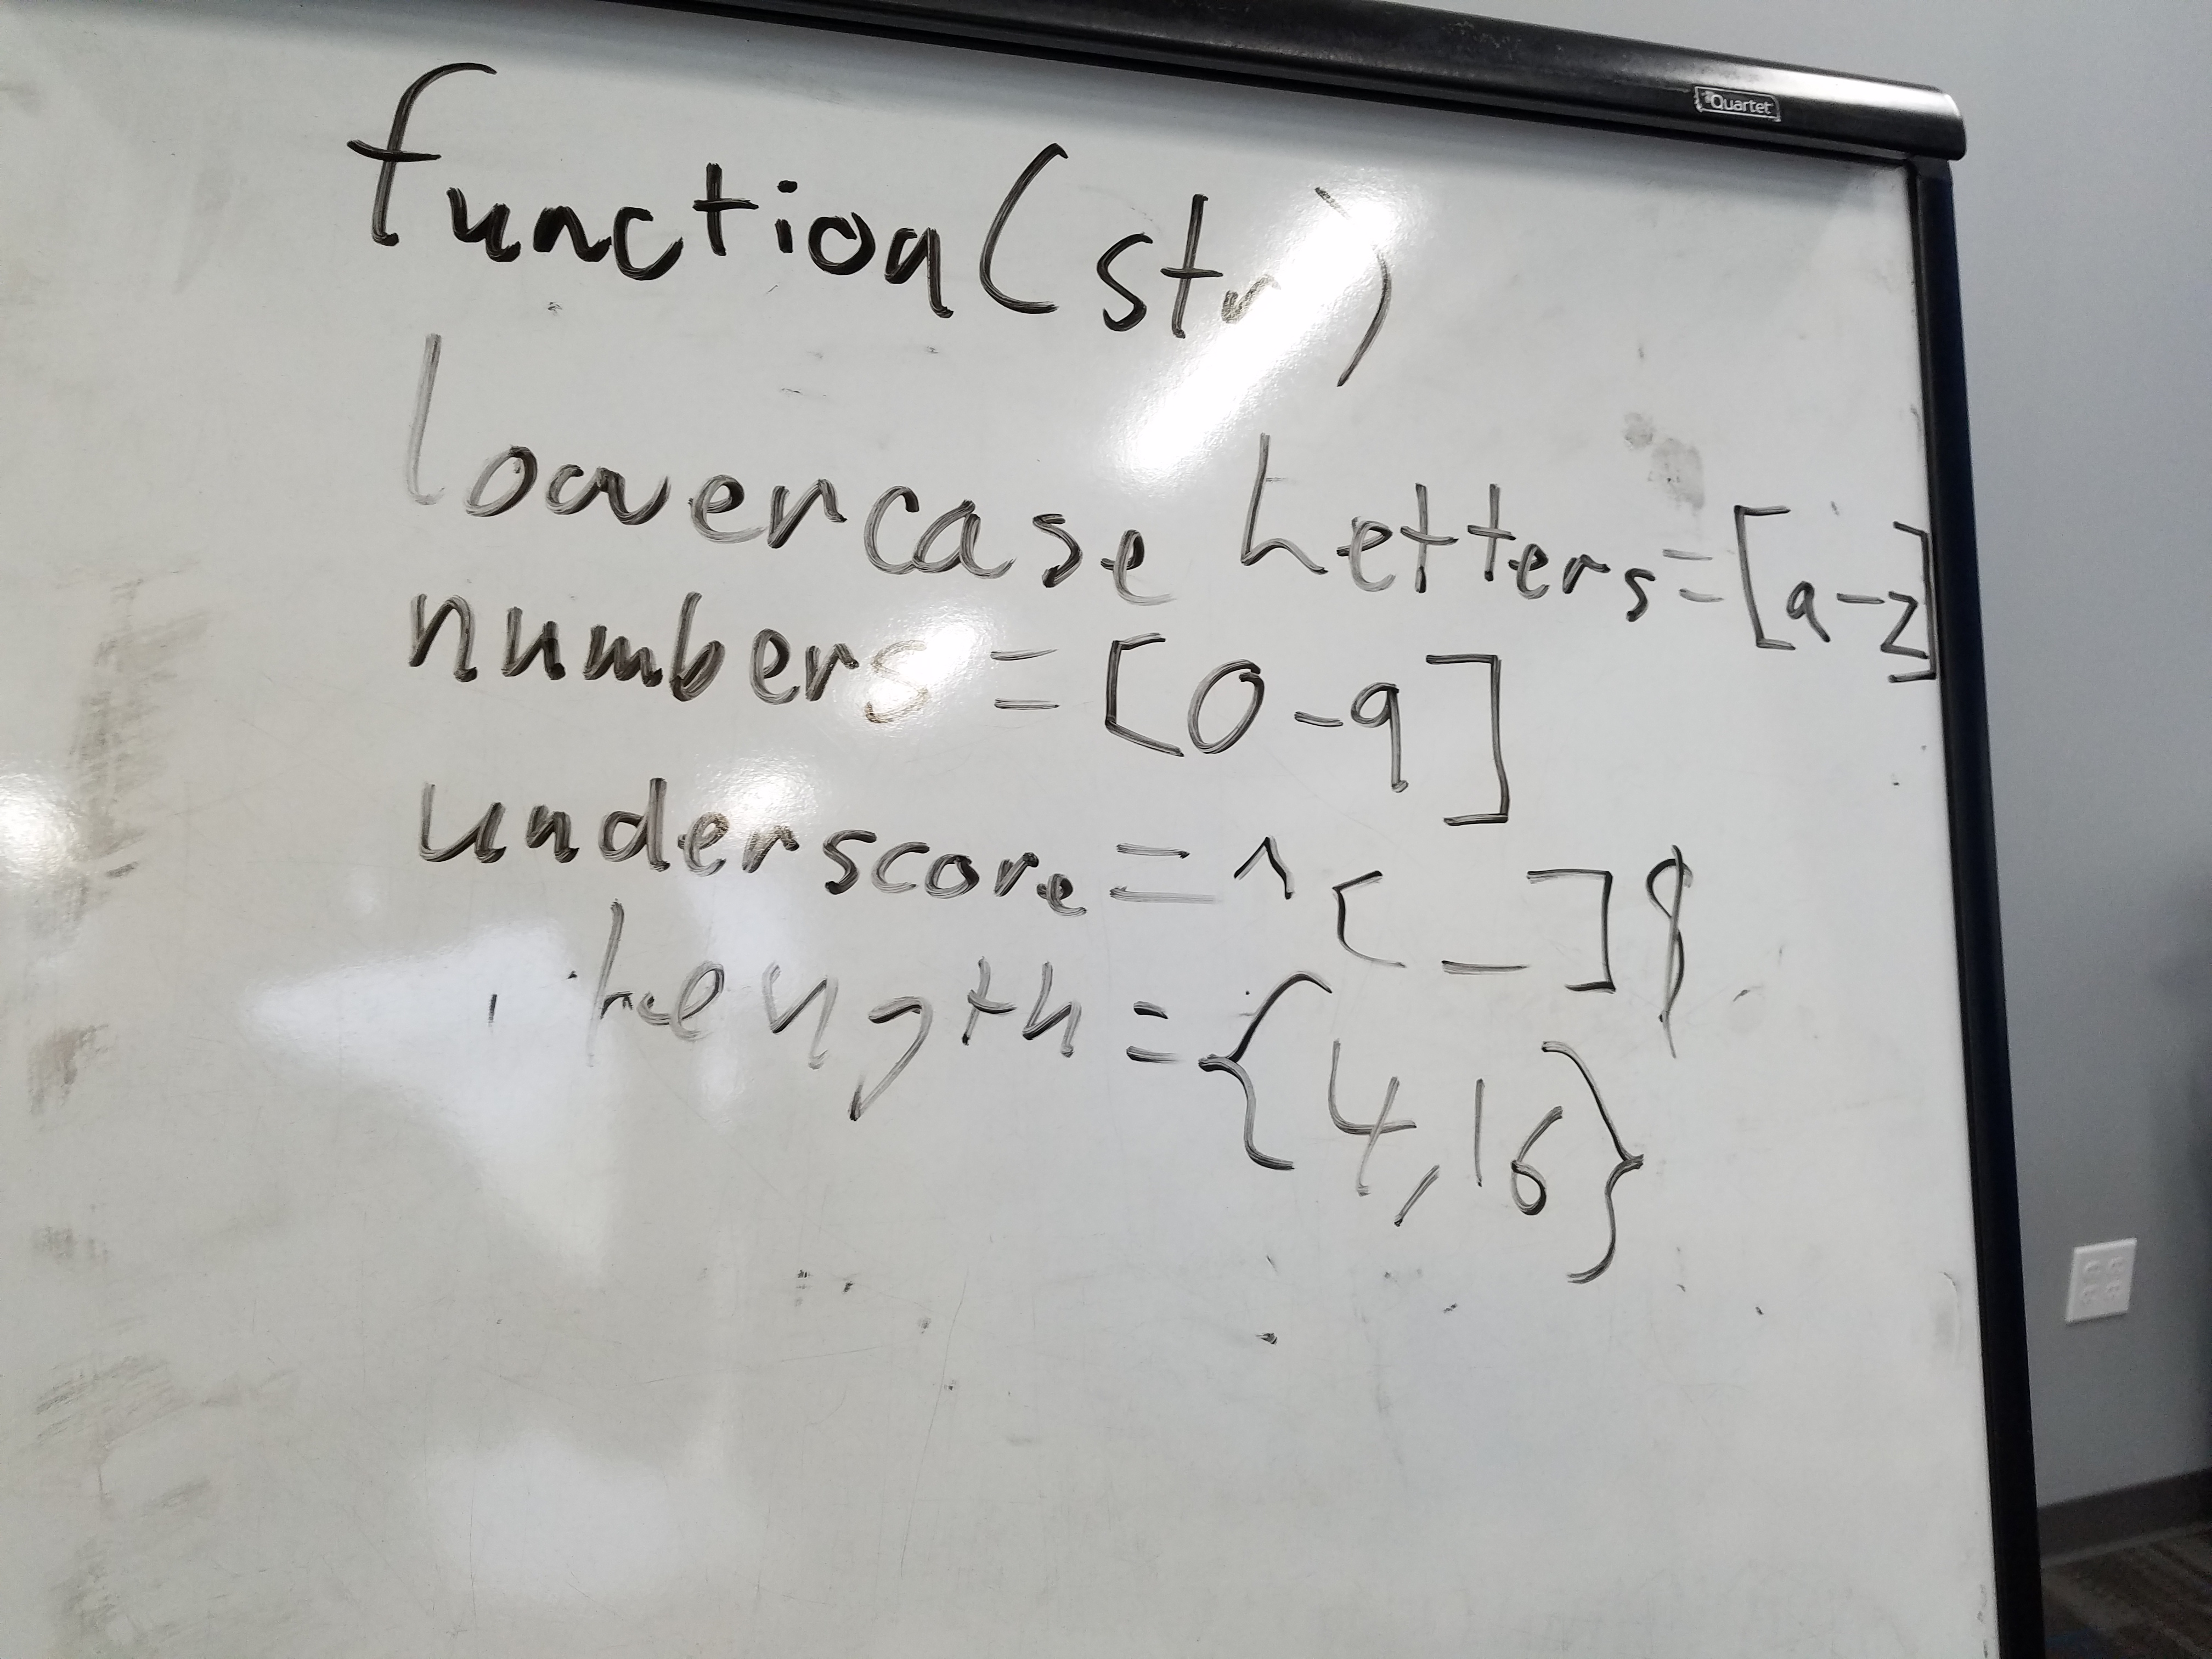 Quartet
function(str)
lowercase Letters=[a-z]
numbers=[0-9]
underscore=^[_]$
Length={4,16}